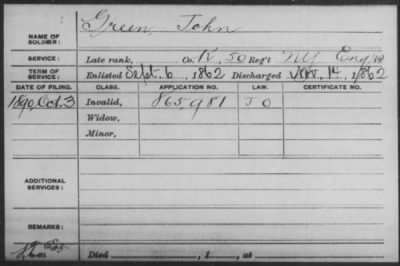 Green, John
NAME OF SOLDIER:
SERVICE: Late rank, Co. K, 50 Reg't NY Eng'rs
TERM OF SERVICE: Enlisted Sept. 6, 1862 Discharged Nov. 14, 1862
DATE OF FILING. CLASS. APPLICATION NO. LAW. CERTIFICATE NO.
1890, Oct. 3 Invalid, 865,981 J O
Widow,
Minor,
ADDITIONAL SERVICES:
REMARKS:
Died , 1 , at